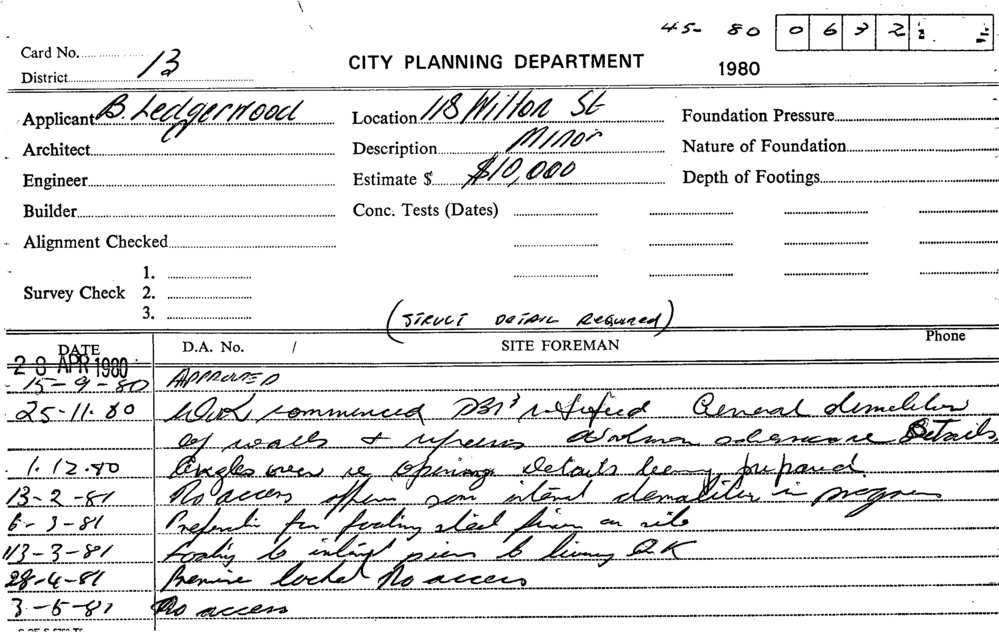 45- 80 0632
Card No.
District 13
CITY PLANNING DEPARTMENT
1980
Applicant B. Ledgerwood
Location 118 Wilton St
Foundation Pressure
Architect
Description Minor
Nature of Foundation
Engineer
Estimate $ $10,000
Depth of Footings
Builder
Conc. Tests (Dates)
Alignment Checked
Survey Check
1.
2.
3.
(STRUCT DETAIL REQUIRED)
DATE
D.A. No. /
SITE FOREMAN
Phone
28 APR 1980
15-9-80 APPROVED
25-11-80 Work commenced General demolition
of walls + Details
1.12.80 Angles over opening details being prepared
13-2-81 No access some internal demolition in progress
6-3-81 for footing steel on site
13-3-81 Footing to piers to living O.K
28-4-81 Premise locked No access
3-5-81 No access